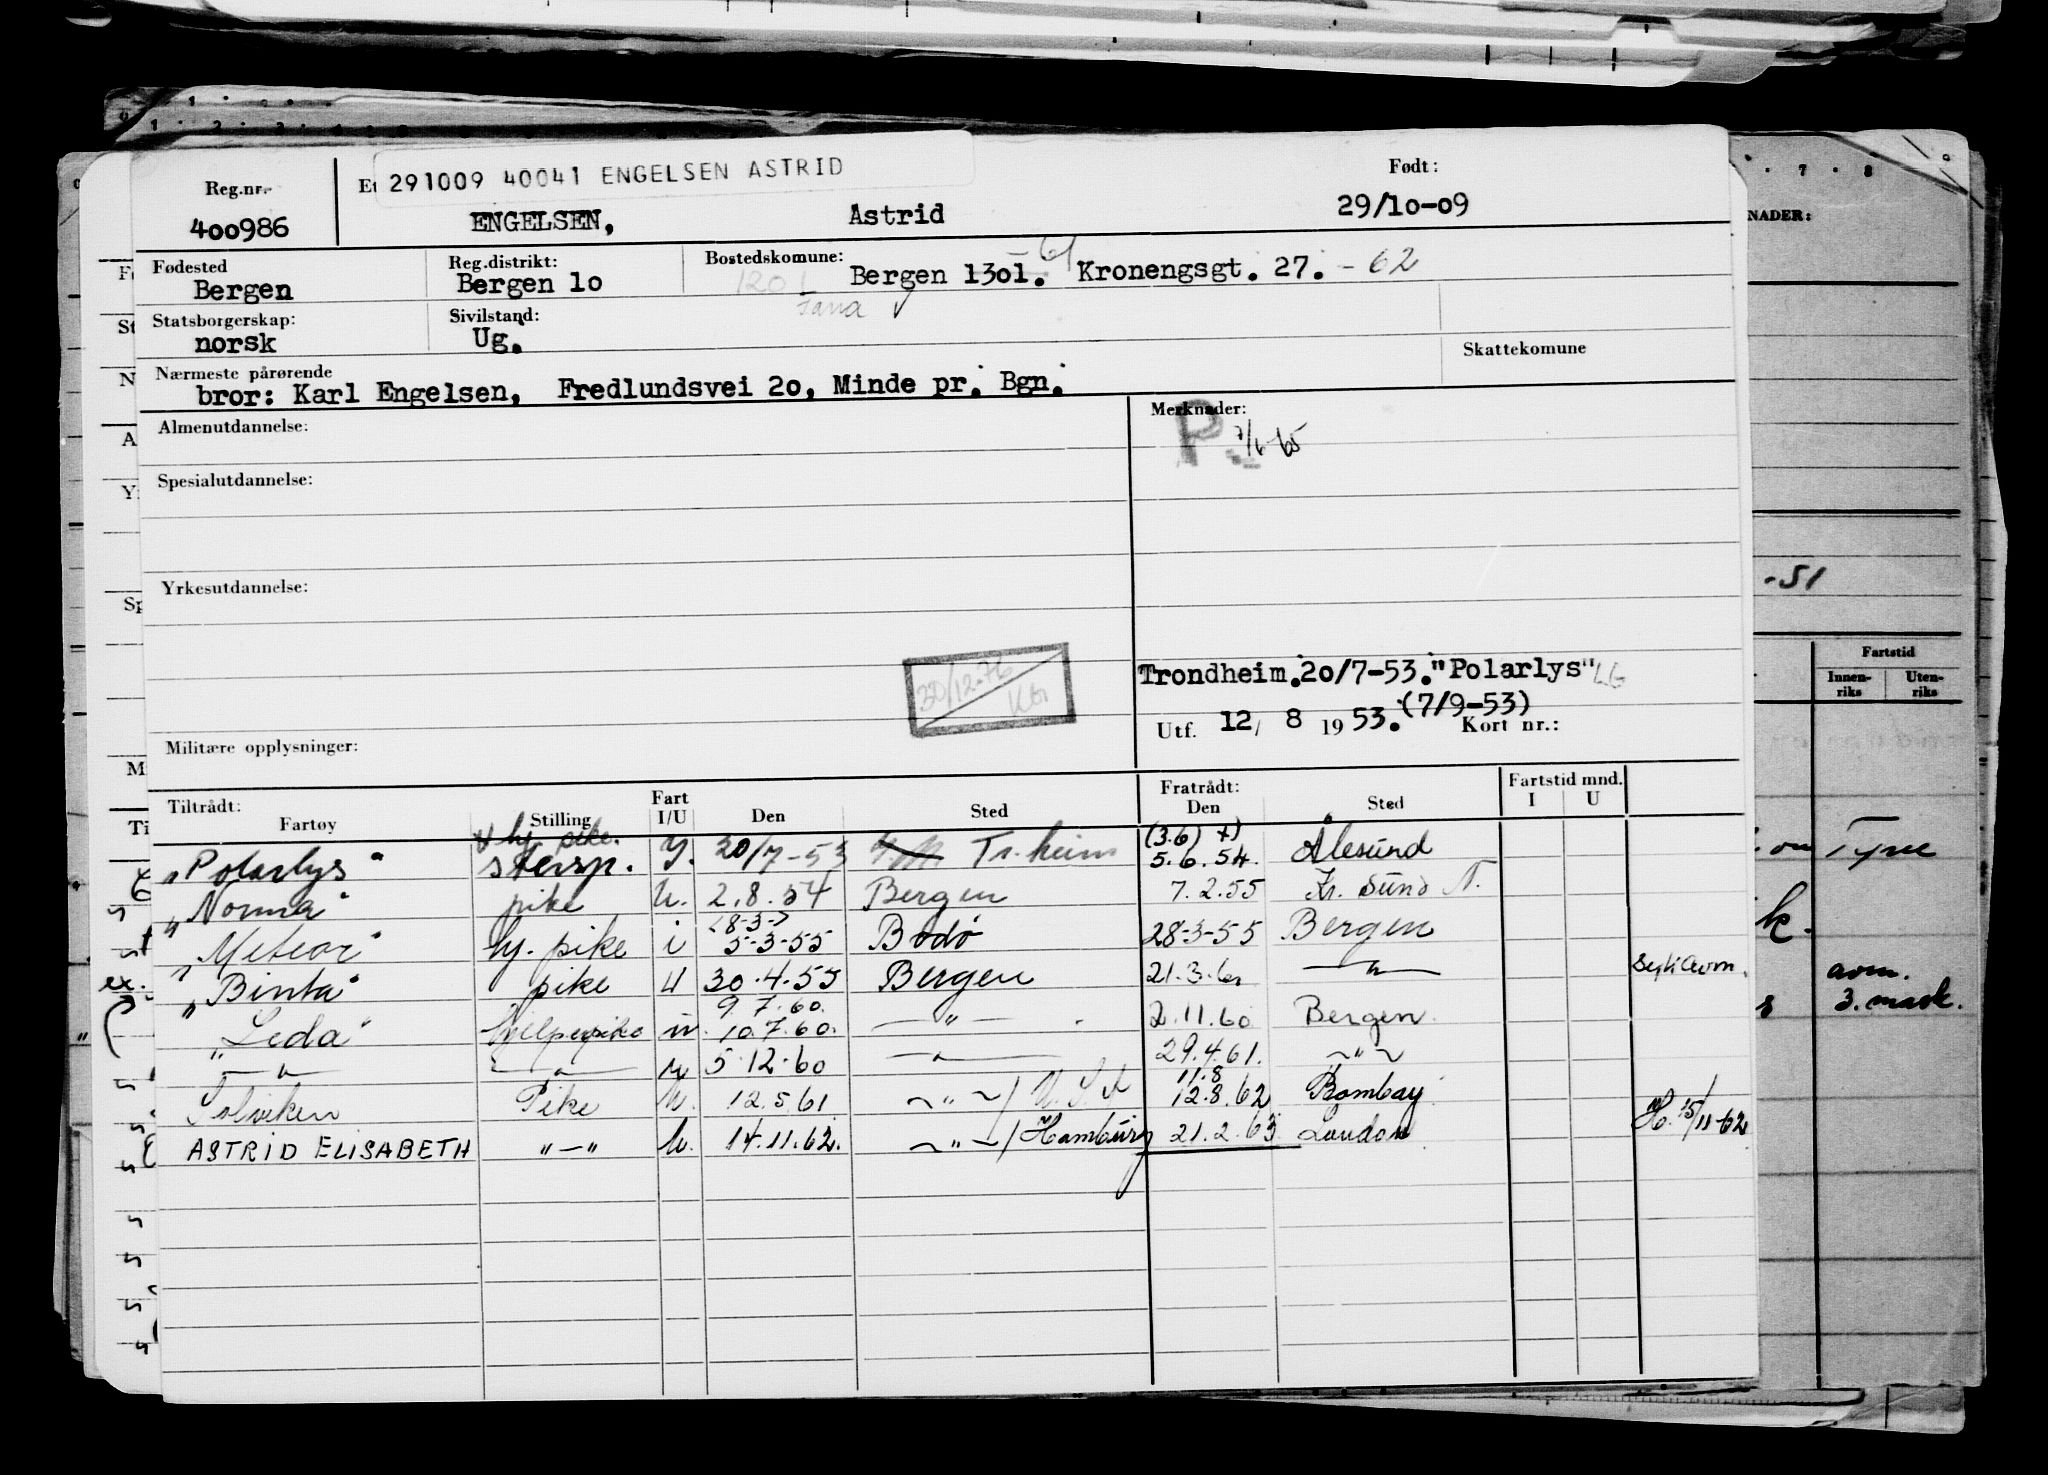 291009 40041 ENGELSEN ASTRID
Reg.nr. Født:
400986 ENGELSEN, Astrid 29/10-09
Fødested Reg.distrikt: Bostedskomune: -61
Bergen Bergen 10 1201 Bergen 1301. Kronengsgt. 27. -62
Statsborgerskap: Sivilstand:
norsk Ug.
Nærmeste pårørende Skattekomune
bror: Karl Engelsen, Fredlundsvei 20, Minde pr. Bgn.
Almenutdannelse: Merknader:
P. 7/6-65
Spesialutdannelse:
Yrkesutdannelse:
30/12-76
Trondheim.20/7-53."Polarlys" LG
(7/9-53)
Utf. 12/ 8 1953. Kort nr.:
Militære opplysninger:
Tiltrådt: Fart Fratrådt: Fartstid mnd.
Fartøy Stilling I/U Den Sted Den Sted I U
hj. pike. (3.6) +)
"Polarlys" stersp. I. 20/7-53 Tr.heim 5.6.54. Ålesund
"Norma" pike U. 2.8.54 Bergen 7.2.55 Kr. Sund N.
(8-3-)
"Meteor" hj. pike i 5-3-55 Bodø 28-3-55 Bergen
"Binta" pike U 30.4.55 Bergen 21.3.60 —"—
9.7.60.
"Leda" hjelpepike u. 10.7.60. —"— 2.11.60 Bergen.
—"— —"— u 5.12.60 —"— 29.4.61. —"—
11.8
Solviken Pike U. 12.5.61 —"— / U.S.A 12.8.62 Bombay
ASTRID ELISABETH "—" U. 14.11.62. —"— / Hamburg 21.2.63 London H. 15/11-62
NADER:
-51
Fartstid
Innen-riks Uten-riks
Tyne
k.
avm.
3. mask.